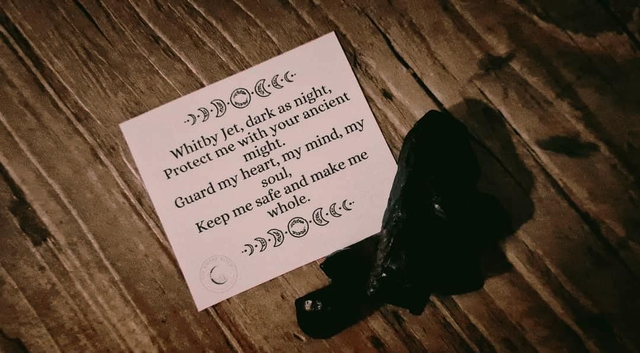 Whitby Jet, dark as night,
Protect me with your ancient
might.
Guard my heart, my mind, my
soul,
Keep me safe and make me
whole.